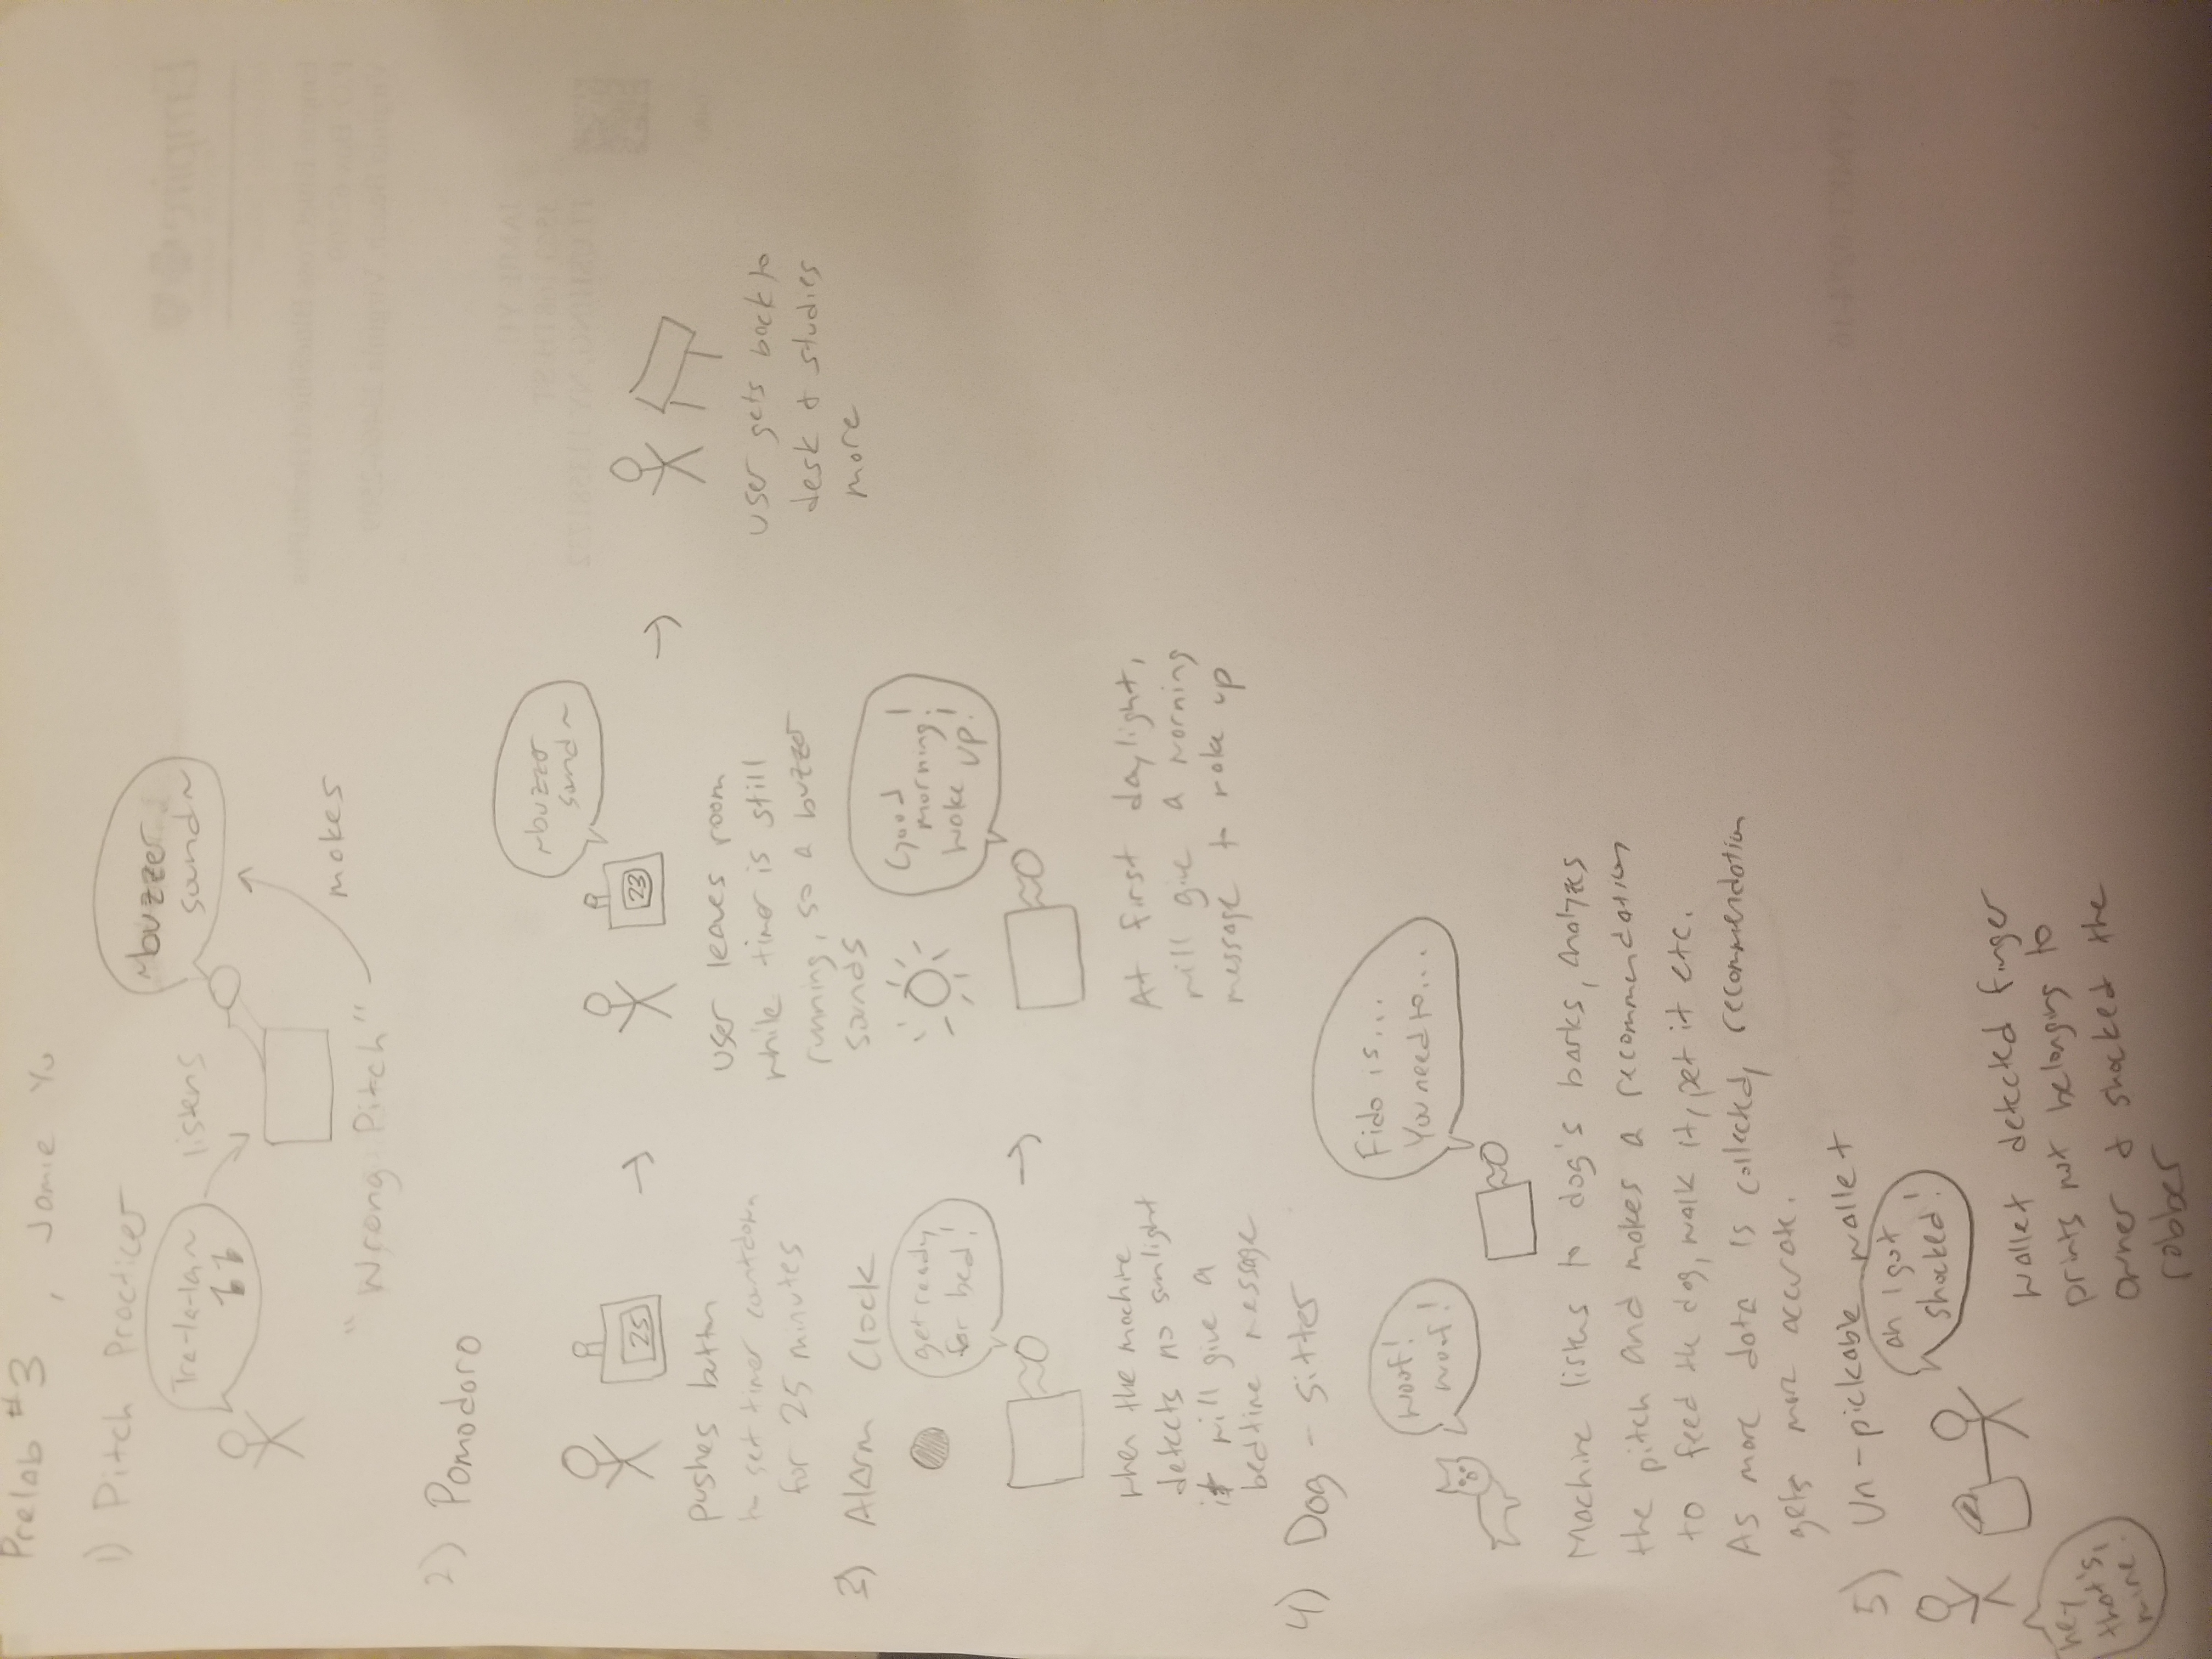 Prelab #3, Jamie Yu
1) Pitch Practicer
Tra-la-la~
listens
~buzzer
sound~
"Wrong Pitch"
makes
2) Pomodoro
25
pushes button
to set timer countdown
for 25 minutes
~buzzer
sound~
23
user leaves room
while timer is still
running, so a buzzer
sounds
user gets back to
desk & studies
more
3) Alarm Clock
get ready
for bed!
when the machine
detects no sunlight
it will give a
bedtime message
Good
morning!
Wake up!
At first daylight,
will give a morning
message to wake up
4) Dog-sitter
woof!
woof!
Fido is...
You need to...
Machine listens to dog's barks, analyzes
the pitch and makes a recommendation
to feed the dog, walk it, pet it etc.
As more data is collected, recommendation
gets more accurate.
5) Un-pickable wallet
ah I got
shocked!
hey
that's
mine!
Wallet detected finger
prints not belonging to
owner & shocked the
robber